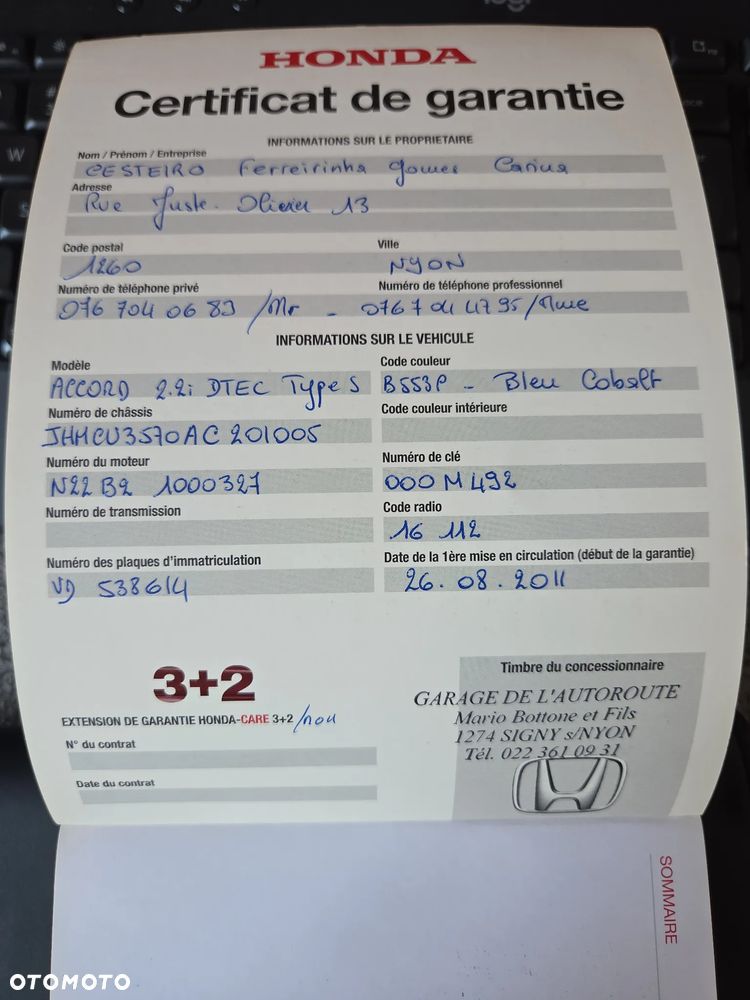 HONDA
Certificat de garantie
INFORMATIONS SUR LE PROPRIETAIRE
Nom / Prénom / Entreprise
CESTEIRO Ferreirinha Gomes
Adresse
Rue Juste-Olivier 13
Code postal Ville
1260 NYON
Numéro de téléphone privé Numéro de téléphone professionnel
076 704 06 83 /Mr - 076 704 47 95 /Mme
INFORMATIONS SUR LE VEHICULE
Modèle Code couleur
ACCORD 2.2i DTEC Type S B553P - Bleu Cobalt
Numéro de châssis Code couleur intérieure
JHMCU3570AC201005
Numéro du moteur Numéro de clé
N22B2 1000327 000 M492
Numéro de transmission Code radio
16 112
Numéro des plaques d'immatriculation Date de la 1ère mise en circulation (début de la garantie)
VD 538614 26.08.2011
3+2
EXTENSION DE GARANTIE HONDA-CARE 3+2 /non
N° du contrat
Date du contrat
Timbre du concessionnaire
GARAGE DE L'AUTOROUTE
Mario Bottone et Fils
1274 SIGNY s/NYON
Tél. 022 361 09 31
SOMMAIRE
OTOMOTO